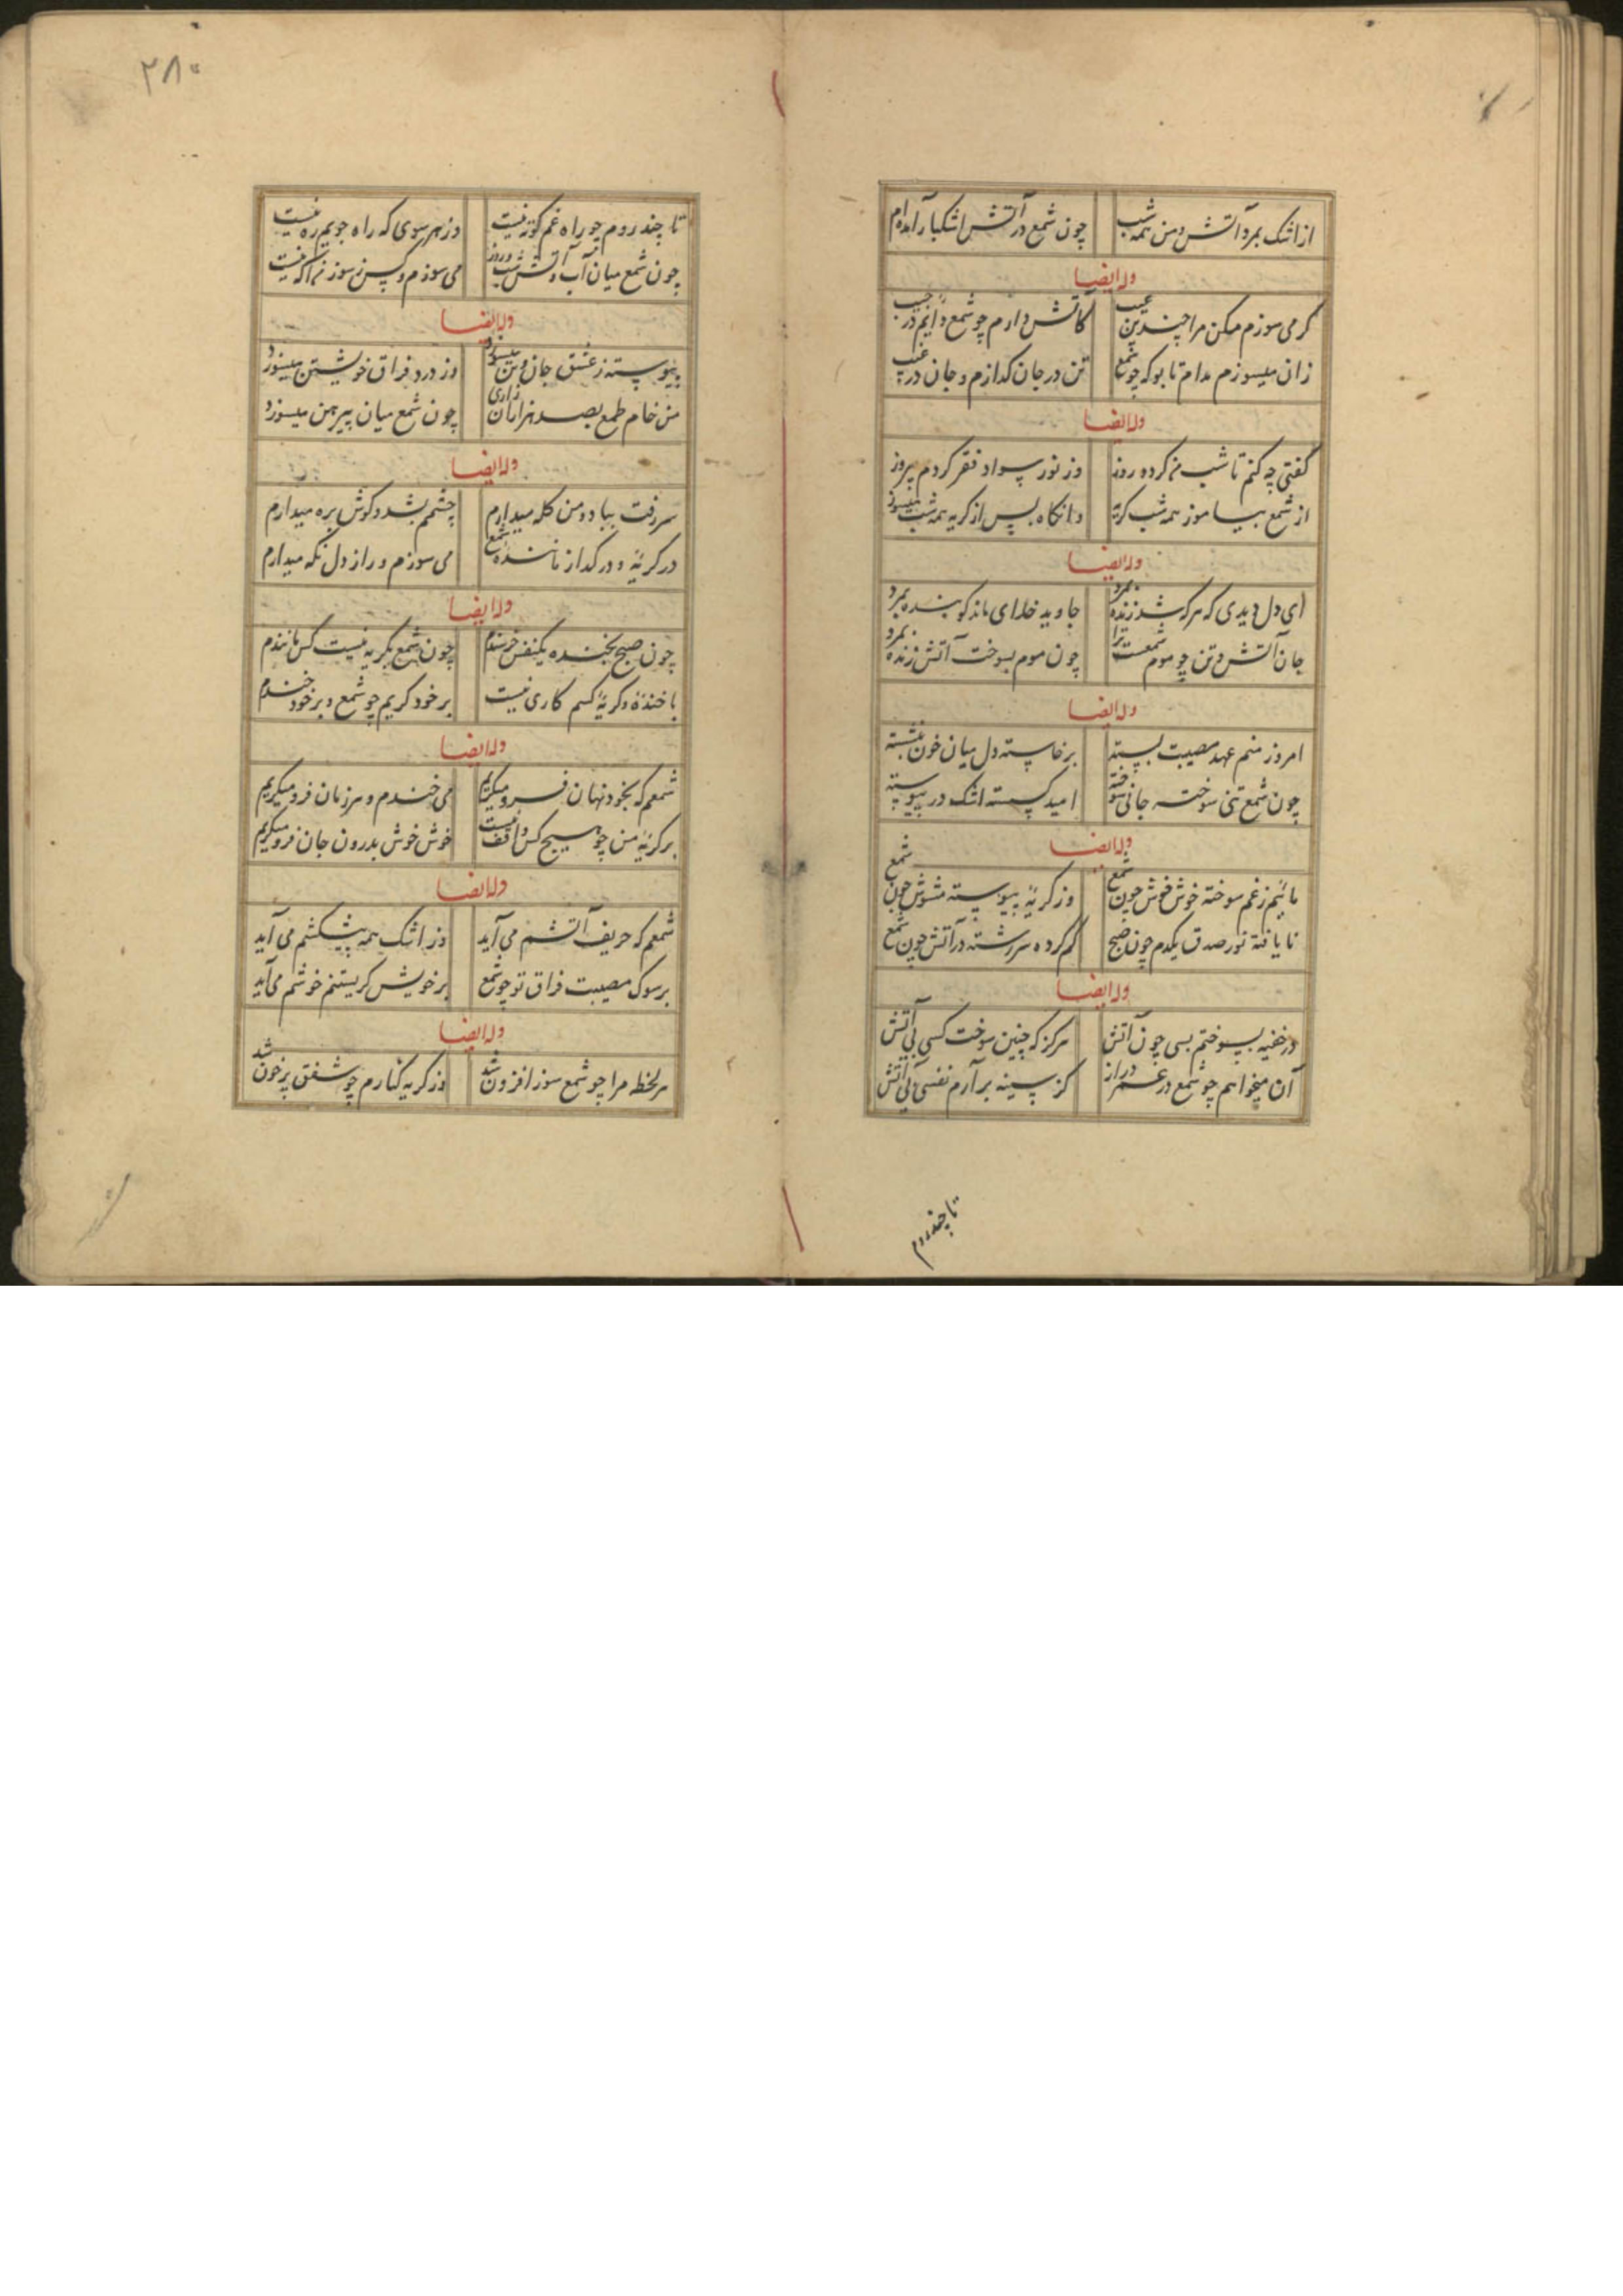 از اشک بمرد آتش و من همه شب چون شمع در آتش اشکبار آمده‌ام
وله ایضا
کر می سوزم مکن مرا چندین عیب کاتش دارم چو شمع دایم در جیب
زان میسوزم مدام تا بوکه چو شمع تن در جان کدازم و جان در غیب
وله ایضا
کفتی چه کنم تا شب من کردد روز وز نور سواد فقر کردم پیروز
از شمع بیاموز همه شب کریه وانکاه پس از کریه همه شب میسوز
وله ایضا
ای دل دیدی که هر که شد زنده بمرد جاوید خدای ماند کو بنده بمرد
جان آتش و تن چو موم شمعست ترا چون موم بسوخت آتش زنده بمرد
وله ایضا
امروز منم عهد مصیبت بسته برخاسته دل میان خون بنشسته
چون شمع تنی سوخته جانی سوخته امید کسسته اشک در پیوسته
وله ایضا
مائیم ز غم سوخته خوش خوش چون شمع وز کریهٔ پیوسته مشوش چون شمع
نایافته نور صدق یکدم چون صبح کم کرده سررشته در آتش چون شمع
وله ایضا
در خفیه بسوختم بسی چون آتش هرکز که چنین سوخت کسی بی آتش
آن میخواهم چو شمع در عمر دراز کز سینه برآرم نفسی بی آتش
تا چند روم
۲۸۰
تا چند روم چو راه غم کوته نیست وز هر سوی که راه جویم ره نیست
چون شمع میان آب و آتش شب و روز می سوزم و کس ز سوز من آکه نیست
وله ایضا
پیوسته ز عشق جان و تن میسوزد وز درد فراق خویشتن میسوزد
من خام طمع بصد هزاران زاری چون شمع میان پیرهن میسوزد
وله ایضا
سر رفت بباد و من کله میدارم چشمم بشد و کوش بره میدارم
در کریه و در کداز مانندهٔ شمع می سوزم و راز دل نکه میدارم
وله ایضا
چون صبح بخنده یکنفس خرسندم چون شمع بکریه نیست کس مانندم
با خنده و کریهٔ کسم کاری نیست بر خود کریم چو شمع و بر خود خندم
وله ایضا
شمعم که بخود نهان فرو میکریم می خندم و هر زمان فرو میکریم
بر کریهٔ من چو هیچ کس واقف نیست خوش خوش بدرون جان فرو میکریم
وله ایضا
شمعم که حریف آتشم می آید وز اشک همه پیشکشم می آید
بر سوک مصیبت فراق تو چو شمع بر خویش کریستنم خوشم می آید
وله ایضا
هر لحظه مرا چو شمع سوز افزون شد وز کریه کنارم چو شفق پر خون شد